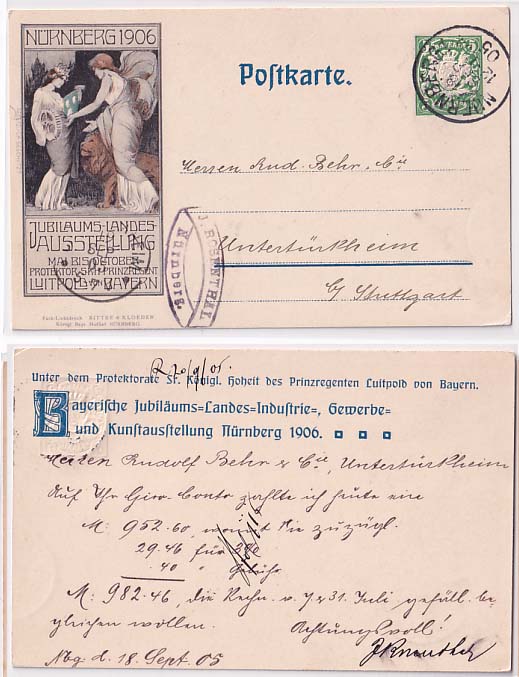 NÜRNBERG 1906
JUBILÄUMS-LANDES-
AUSSTELLUNG
MAI BIS OKTOBER
PROTEKTOR S.K.H. PRINZREGENT
LUITPOLD v. BAYERN
Postkarte.
NUERNBERG
Herren Rud. Behr & Cie
Untertürkheim
b/ Stuttgart
J. ROSENTHAL
Nürnberg.
RITTER & KLOEDEN
NÜRNBERG.
Unter dem Protektorate Sr. Königl. Hoheit des Prinzregenten Luitpold von Bayern.
Bayerische Jubiläums=Landes=Industrie=, Gewerbe=
und Kunstausstellung Nürnberg 1906.
Herren Rudolf Behr & Cie, Untertürkheim
Auf Ihr Giro-Conto zahlte ich heute ein
M: 952.60, womit Sie zuzügl.
29.46 für
.40 " Gebühr
M: 982.46, die Rechn. v. 7 & 31. Juli gefäll. be-
gleichen wollen.
Achtungsvoll!
Nbg d. 18. Sept. 05